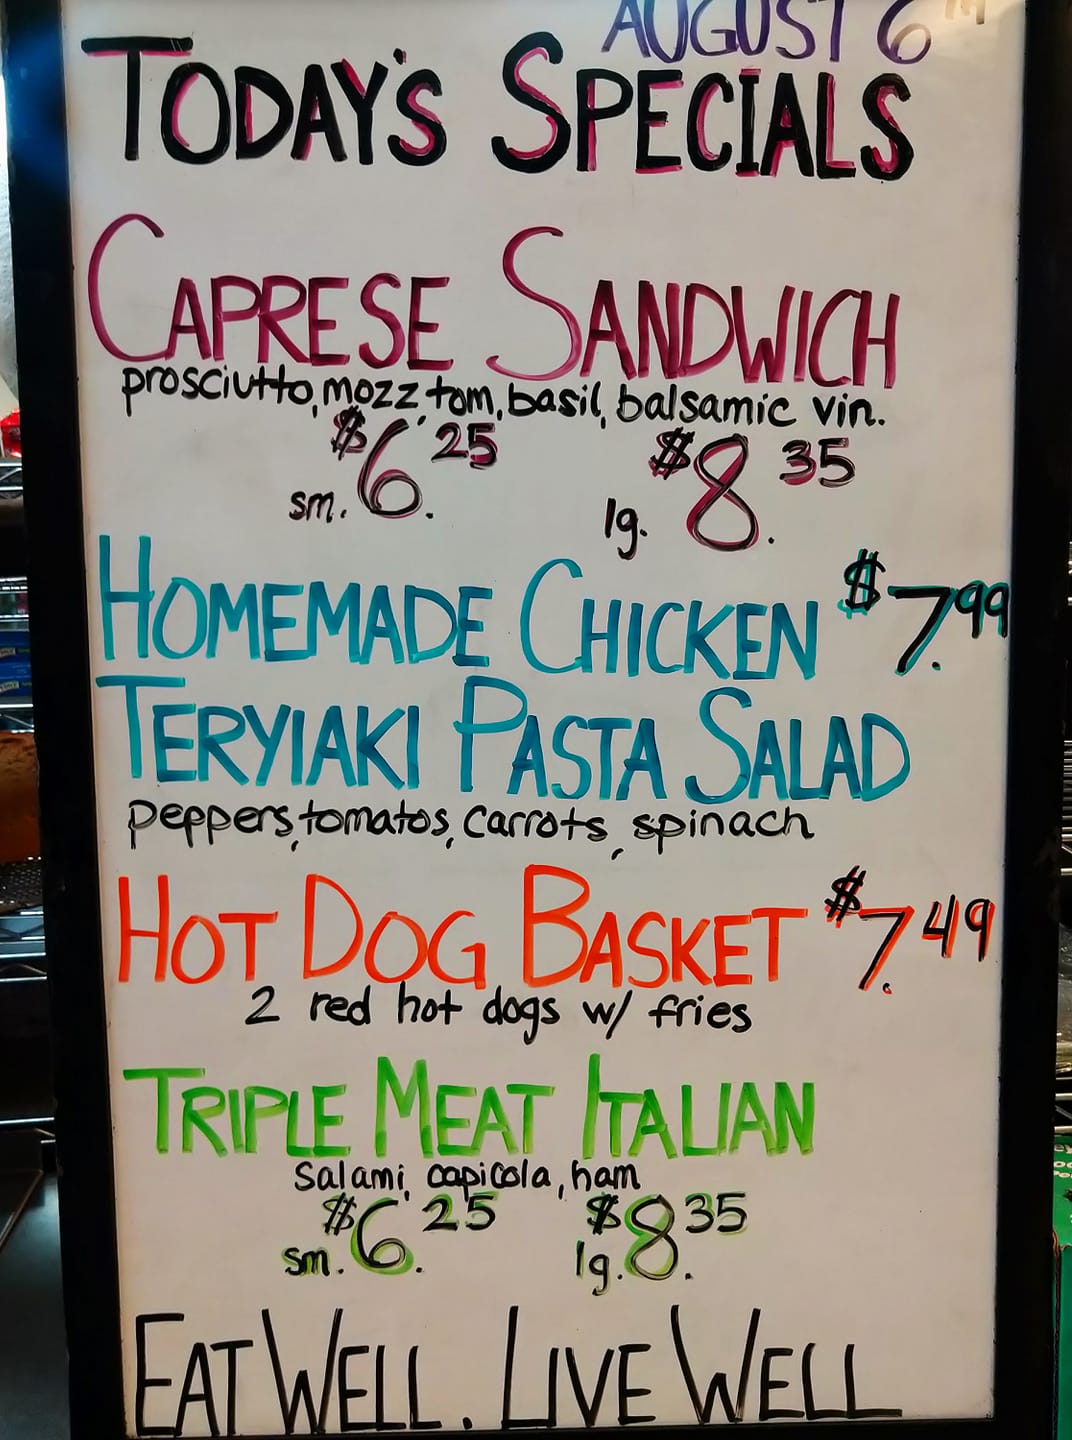 AUGUST 6TH
TODAY'S SPECIALS
CAPRESE SANDWICH
prosciutto, mozz, tom, basil, balsamic vin.
sm. $6.25 lg. $8.35
HOMEMADE CHICKEN $7.99
TERYIAKI PASTA SALAD
peppers, tomatos, carrots, spinach
HOT DOG BASKET $7.49
2 red hot dogs w/ fries
TRIPLE MEAT ITALIAN
salami, capicola, ham
sm. $6.25 lg. $8.35
EAT WELL. LIVE WELL